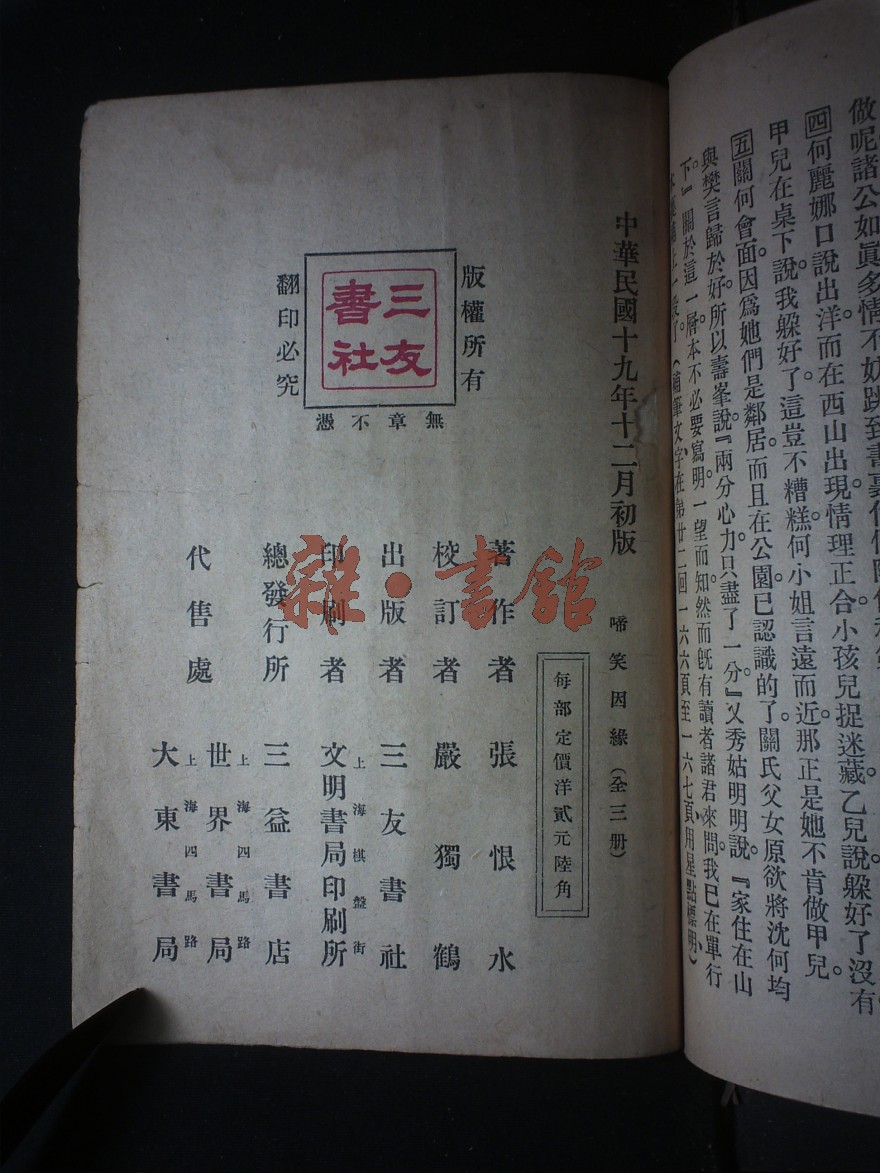 做呢諸公如眞多情不妨跳到書裏
四何麗娜口說出洋而在西山出現情理正合小孩兒捉迷藏乙兒說躲好了沒有
甲兒在桌下說我躲好了這豈不糟糕何小姐言遠而近那正是她不肯做甲兒
五關何會面因爲她們是鄰居而且在公園已認識的了關氏父女原欲將沈何均
與樊言歸於好所以壽峯說『兩分心力只盡了一分』又秀姑明明說『家住在山
下』關於這一層本不必要寫明一望而知然而旣有讀者諸君來問我已在單行
(補筆文字在第廿二回一六六頁至一六七頁用星點標明)
中華民國十九年十二月初版
啼笑因緣(全三册)
每部定價洋貳元陸角
版權所有
三友書社
翻印必究
無章不憑
著作者 張恨水
校訂者 嚴獨鶴
出版者 三友書社
印刷者 上海棋盤街 文明書局印刷所
總發行所 三益書店
代售處 上海四馬路 世界書局
上海四馬路 大東書局
雜·書館